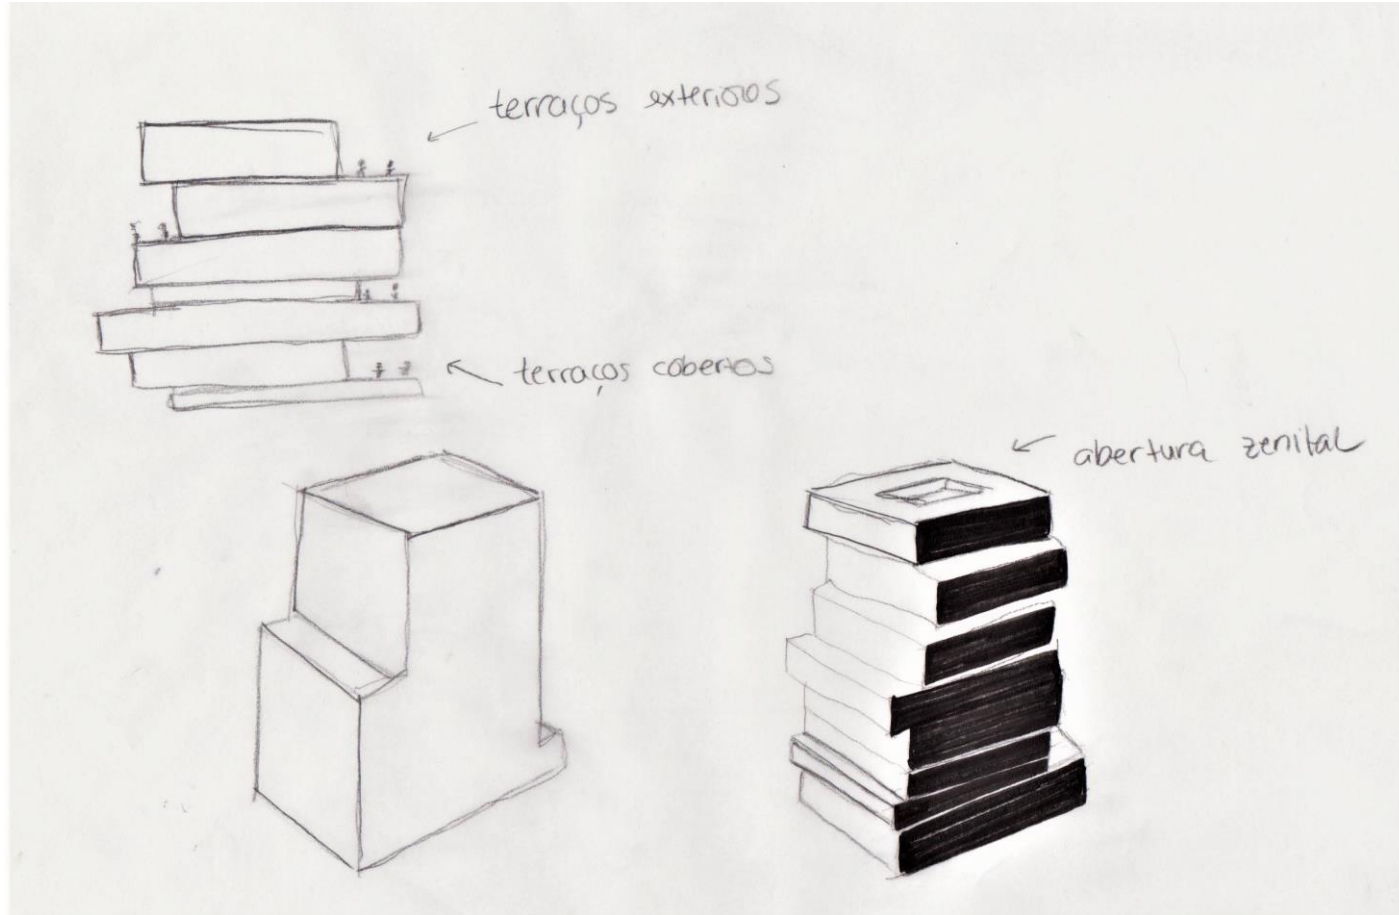 terraços exteriores
terraços cobertos
abertura zenital